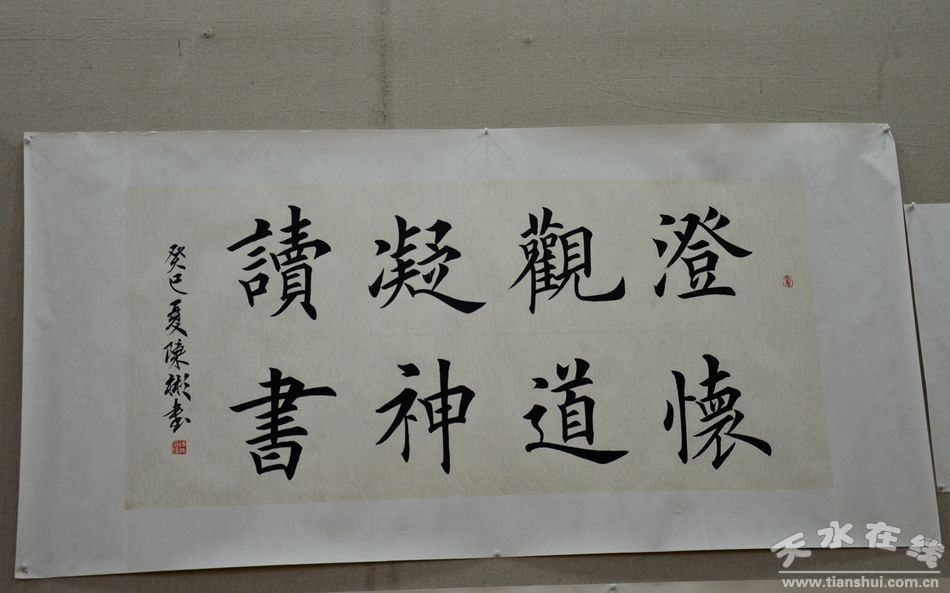 澄懷
觀道
凝神
讀書
癸巳夏陳彬書
天水在线
www.tianshui.com.cn